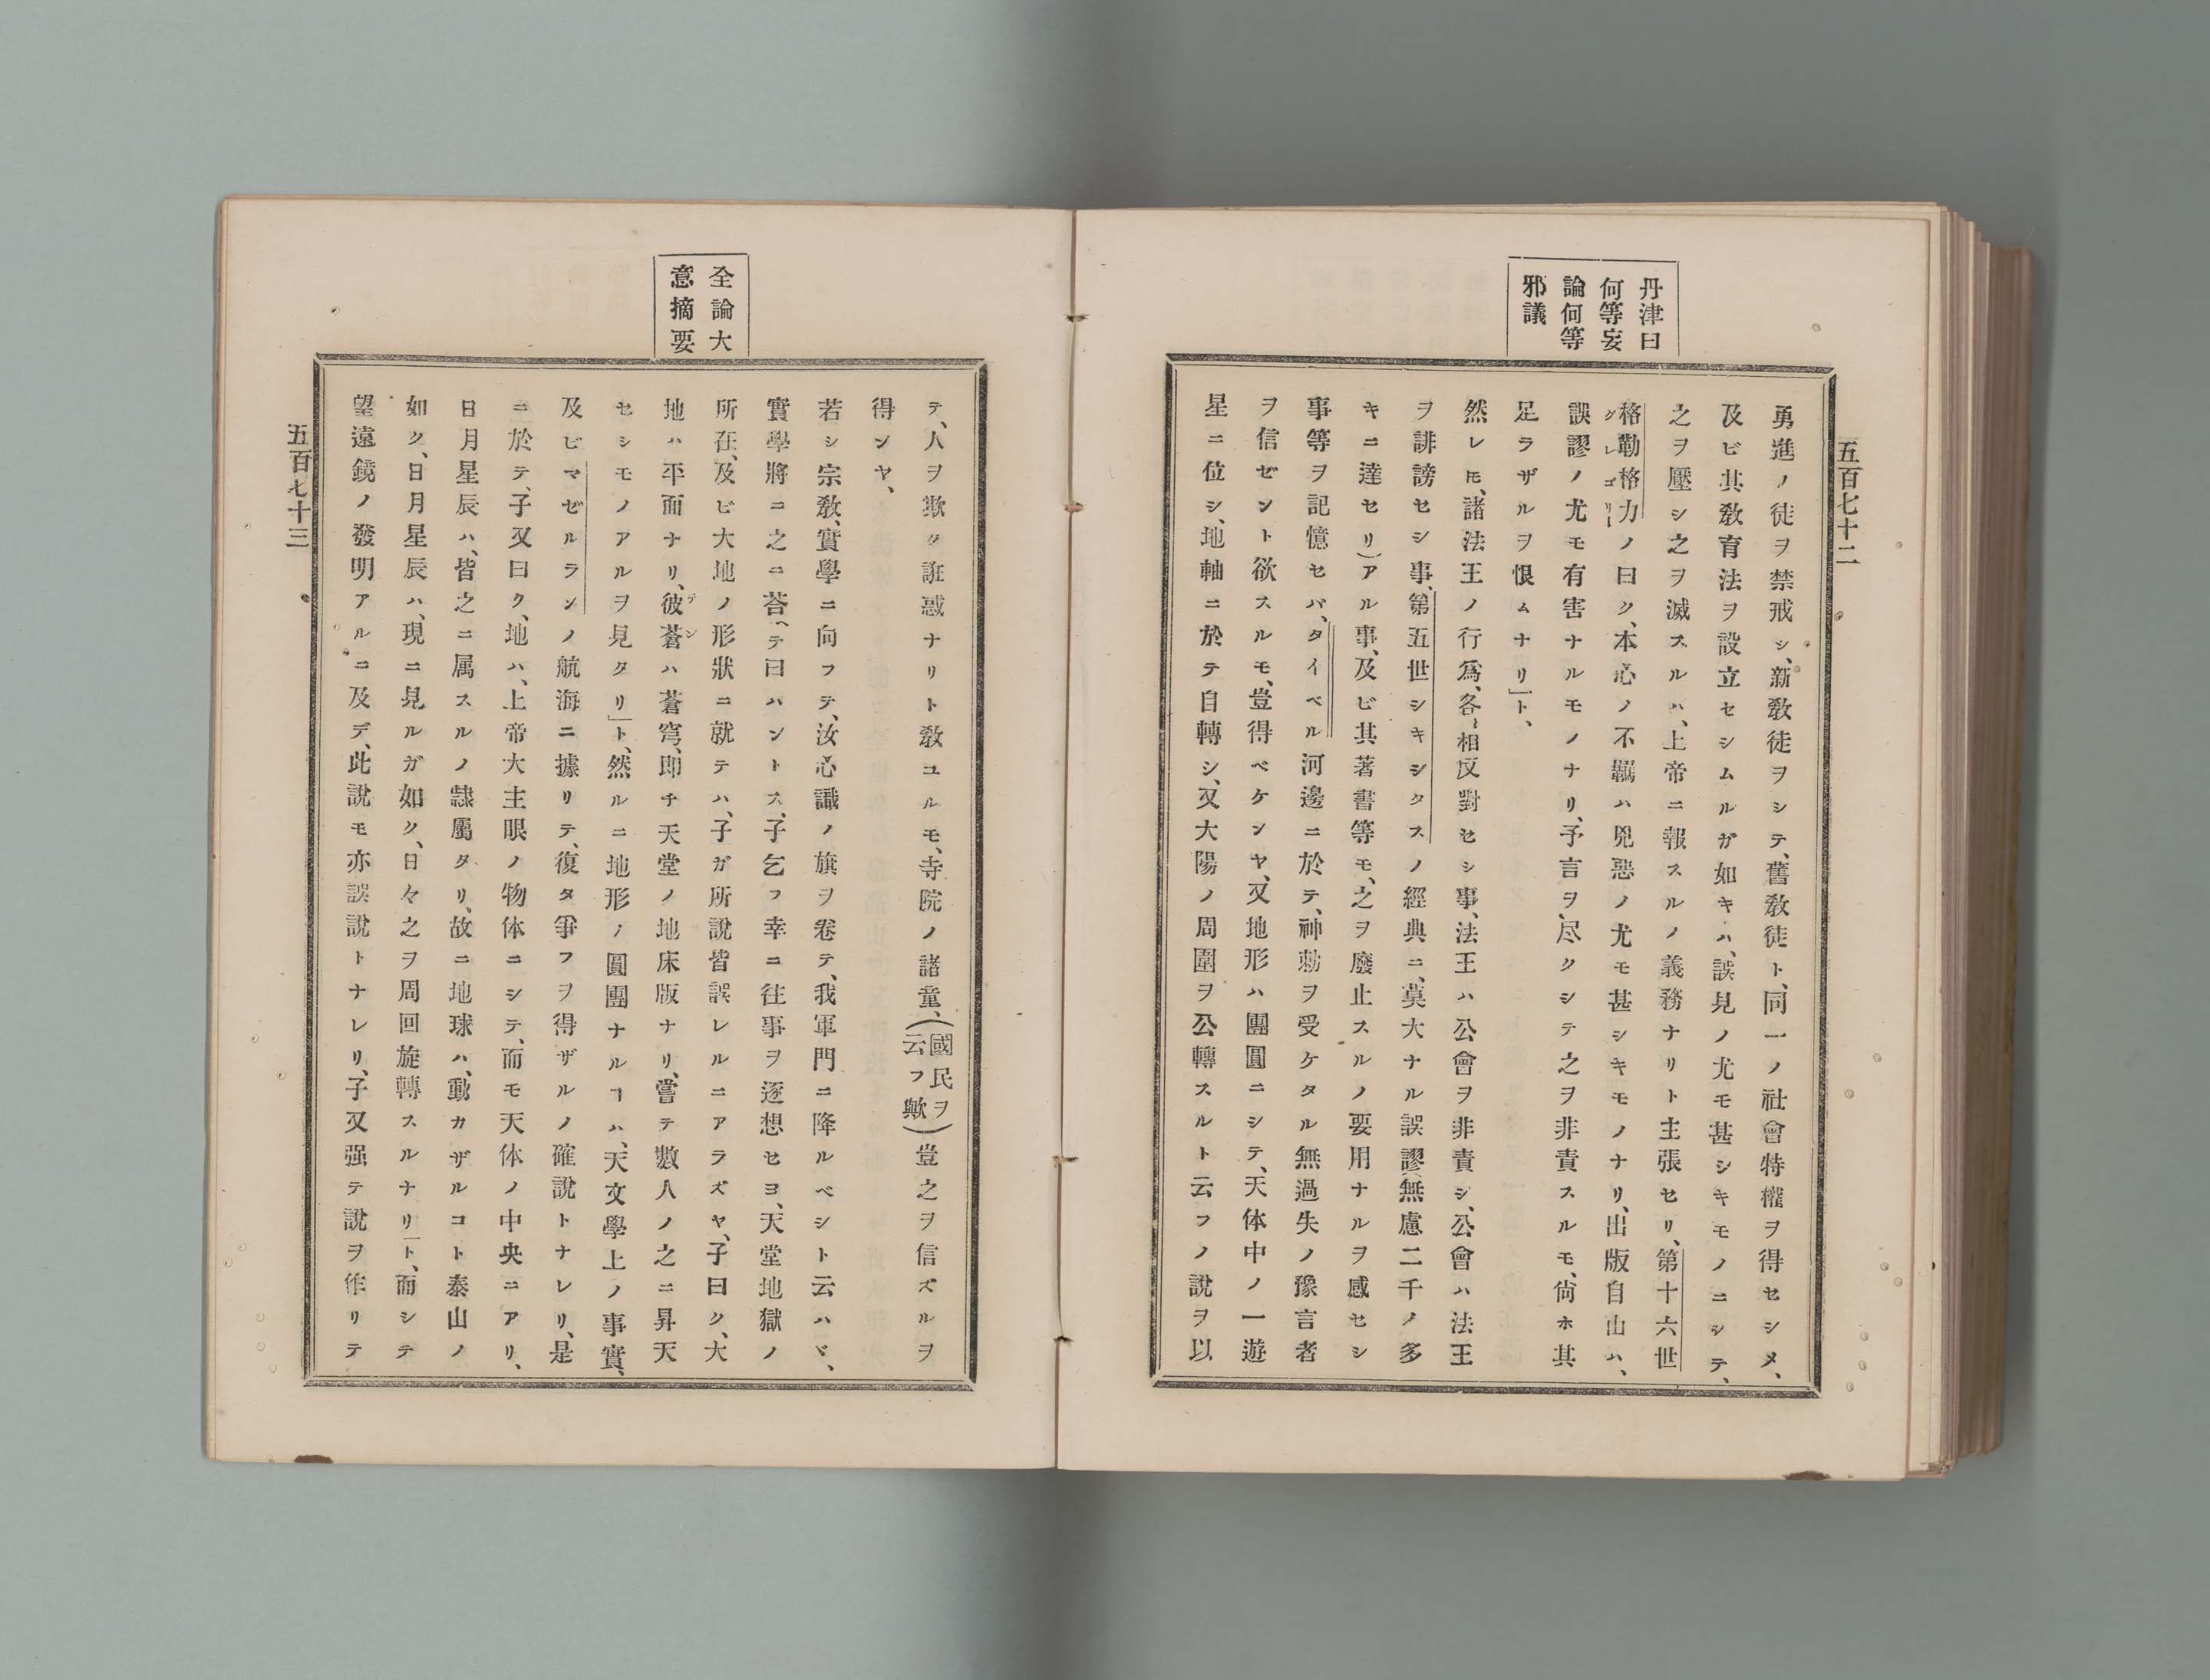 五百七十二
丹津曰
何等妄
論何等
邪議
勇進ノ徒ヲ禁戒シ、新敎徒ヲシテ、舊敎徒ト、同一ノ社會特權ヲ得セシメ、
及ビ其敎育法ヲ設立セシムルガ如キハ、誤見ノ尤モ甚シキモノニシテ、
之ヲ壓シ之ヲ滅スルハ、上帝ニ報スルノ義務ナリト主張セリ、第十六世
格勒格力ノ曰ク、本心ノ不羈ハ兇惡ノ尤モ甚シキモノナリ、出版自由ハ、
グレゴリー
誤謬ノ尤モ有害ナルモノナリ、予言ヲ、尽クシテ之ヲ非責スルモ、尙ホ其
足ラザルヲ恨ムナリ」ト、
然レ𪜈、諸法王ノ行爲、各〻相反對セシ事、法王ハ公會ヲ非責シ、公會ハ法王
ヲ誹謗セシ事、第五世シキシタスノ經典ニ、莫大ナル誤謬(無慮二千ノ多
キニ達セリ)アル事、及ビ其著書等モ、之ヲ廢止スルノ要用ナルヲ感セシ
事等ヲ記憶セバ、タイベル河邊ニ於テ、神勅ヲ受ケタル無過失ノ豫言者
ヲ信ゼント欲スルモ、豈得ベケンヤ、又地形ハ團圓ニシテ、天体中ノ一遊
星ニ位シ、地軸ニ於テ自轉シ、又大陽ノ周圍ヲ公轉スルト云フノ說ヲ以
全論大
意摘要
テ、人ヲ欺ク誑惑ナリト敎ユルモ、寺院ノ諸童、(國民ヲ云フ歟)豈之ヲ信ズルヲ
得ンヤ、
若シ宗敎、實學ニ向フテ、汝心識ノ旗ヲ卷テ、我軍門ニ降ルベシト云ハヾ、
實學將ニ之ニ荅ヘテ曰ハントス、子乞フ幸ニ往事ヲ逐想セヨ、天堂地獄ノ
所在、及ビ大地ノ形狀ニ就テハ、子ガ所說皆誤レルニアラズヤ、子曰ク、大
地ハ平面ナリ、彼蒼ハ蒼穹、卽チ天堂ノ地床版ナリ、嘗テ數人ノ之ニ昇天
テン
セシモノアルヲ見タリ」ト、然ルニ地形ノ圓團ナルヿハ、天文學上ノ事實、
及ビマゼルランノ航海ニ據リテ、復タ爭フヲ得ザルノ確說トナレリ、是
ニ於テ、子又曰ク、地ハ、上帝大主眼ノ物体ニシテ、而モ天体ノ中央ニアリ、
日月星辰ハ、皆之ニ属スルノ隷屬タリ、故ニ地球ハ、動カザルコト泰山ノ
如ク、日月星辰ハ、現ニ見ルガ如ク、日々之ヲ周回旋轉スルナリ」ト、而シテ
望遠鏡ノ發明アルニ及デ、此說モ亦誤說トナレリ、子又强テ說ヲ作リテ
五百七十三